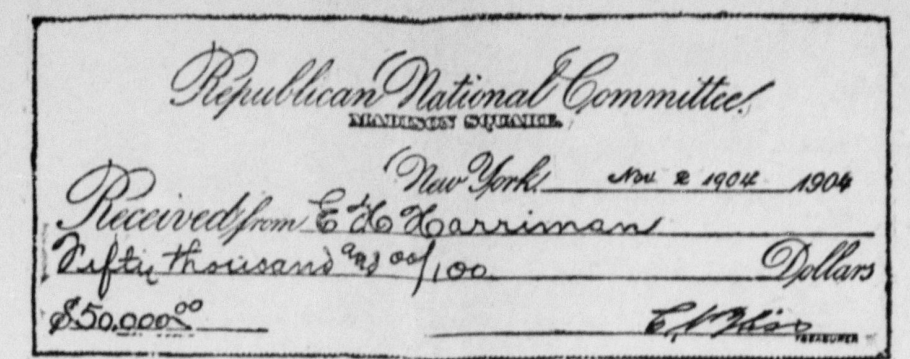 Republican National Committee.
MADISON SQUARE.
New York. Nov 2 1904 1904
Received from E H Harriman
Fifty thousand and 00/100 Dollars
$50,000.00 C N Bliss
TREASURER